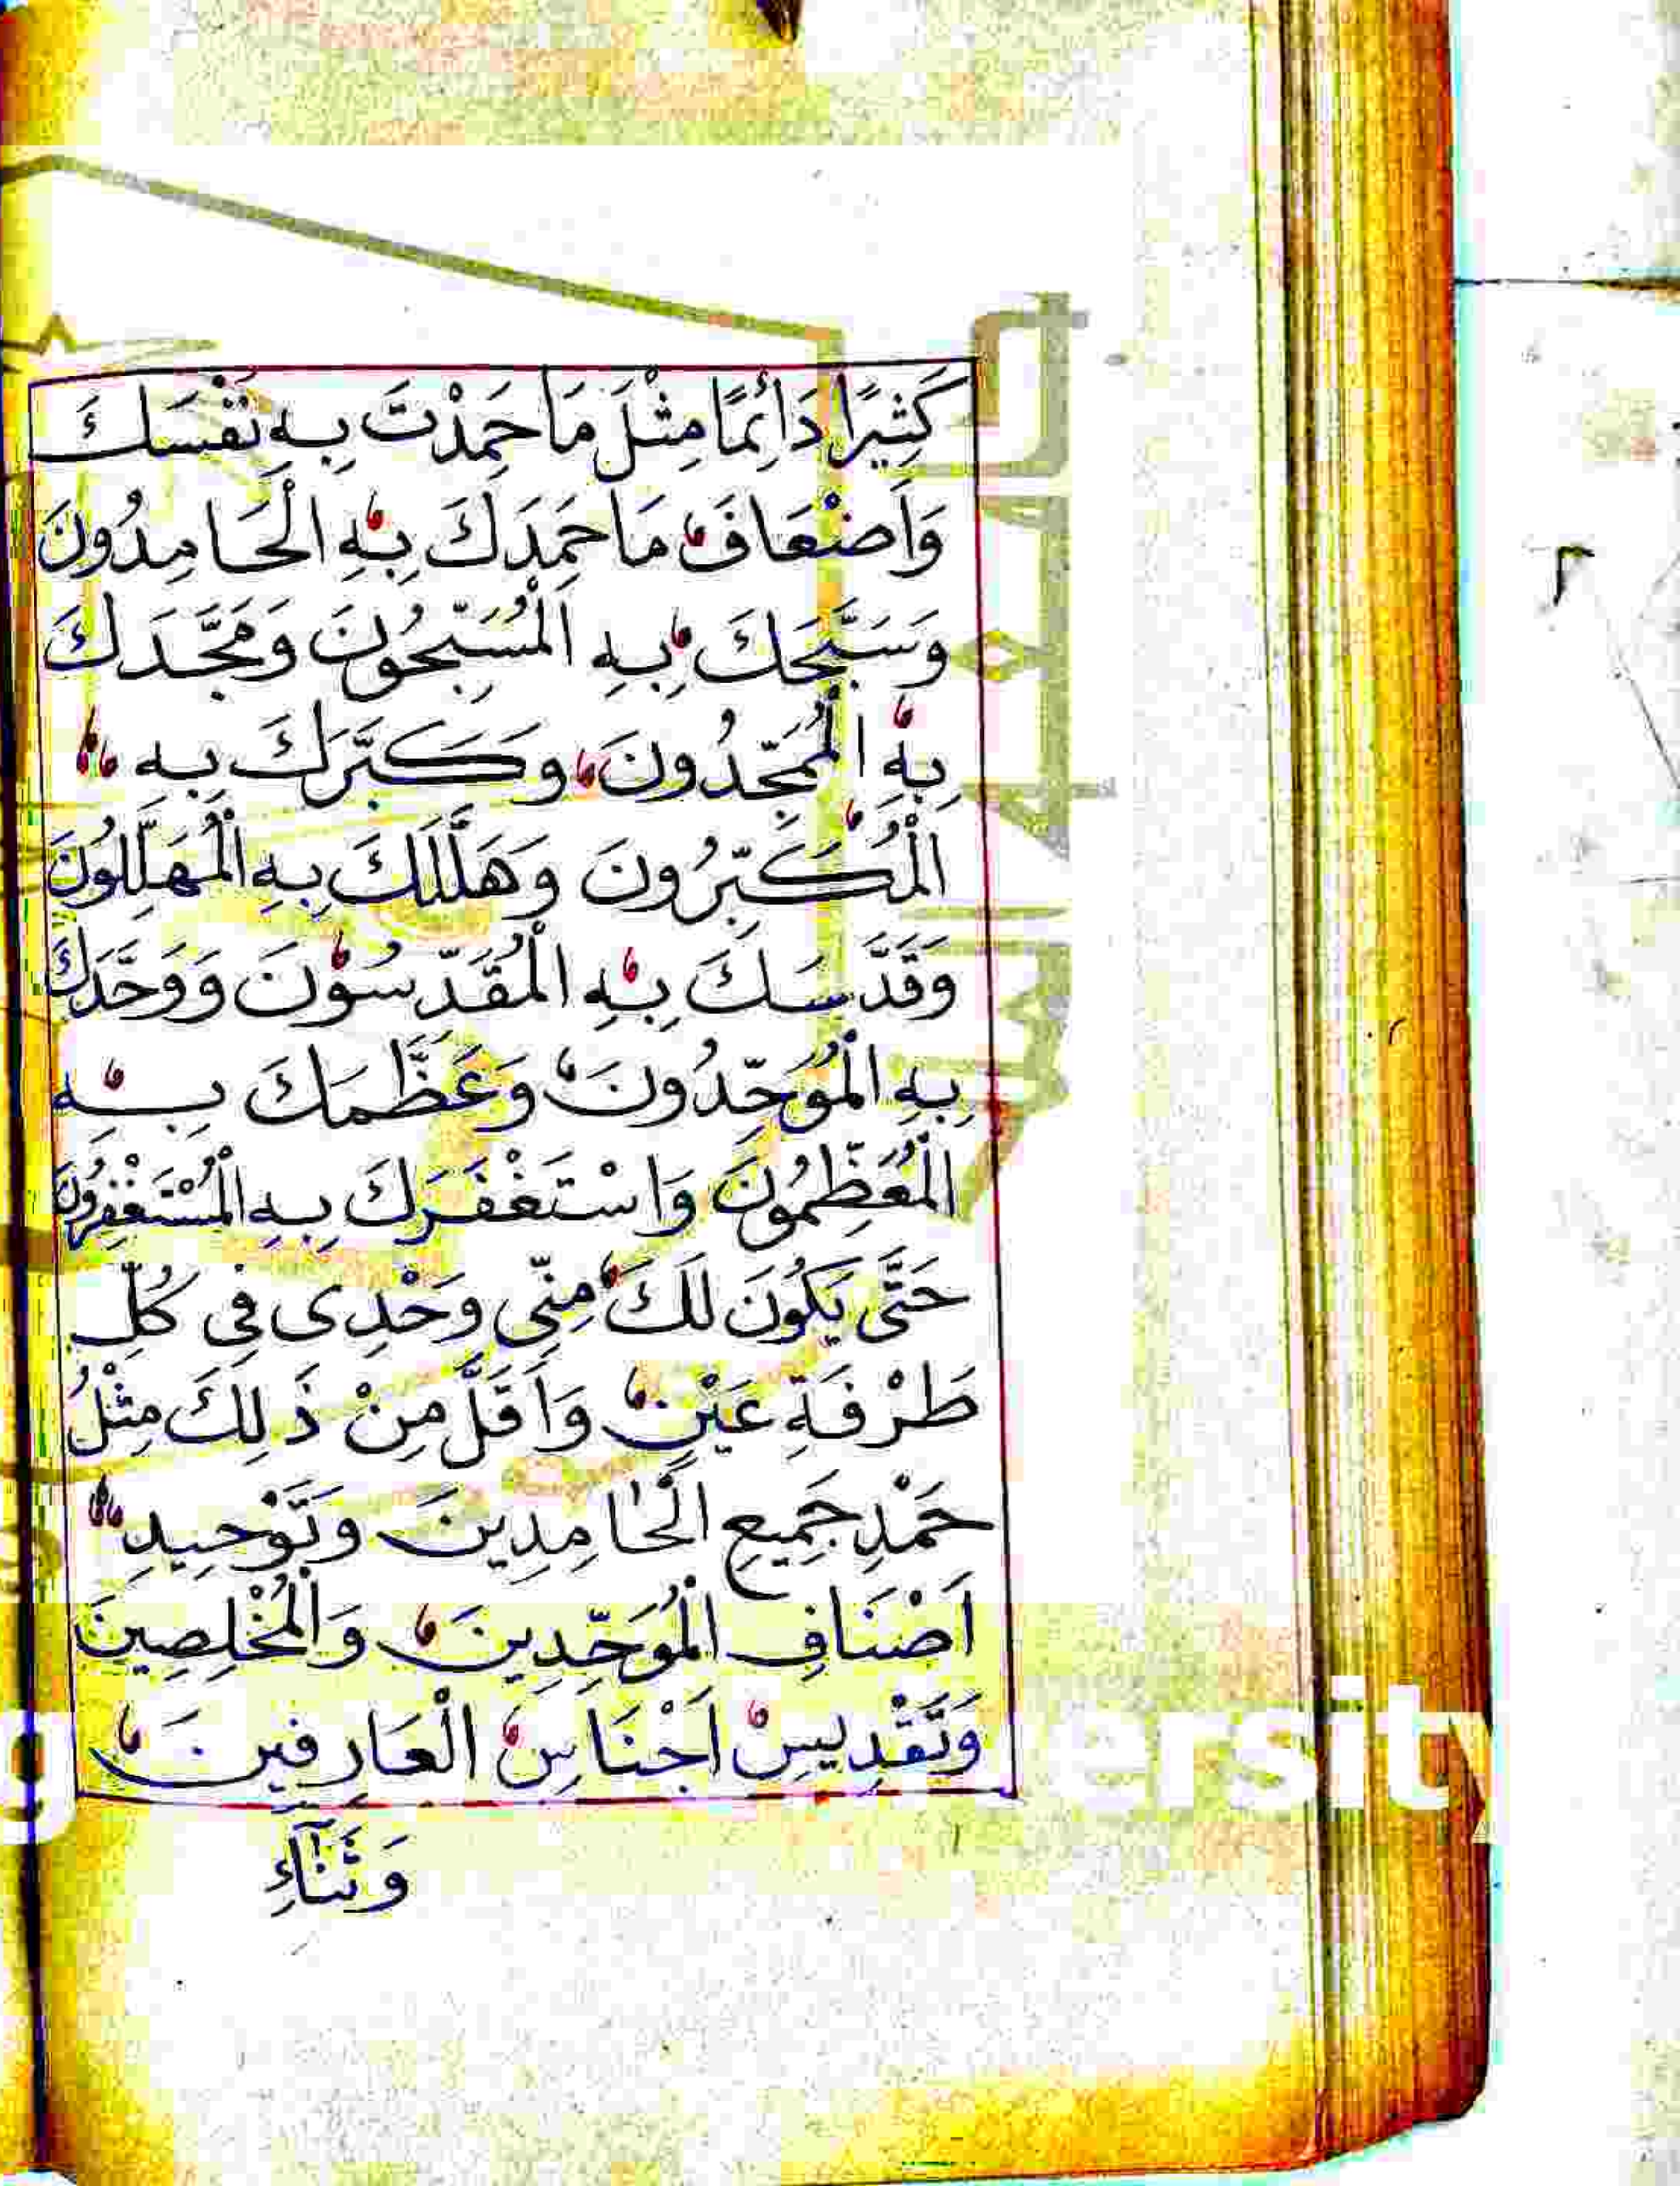 كَثِيرًا دَائِمًا مِثْلَ مَا حَمِدْتَ بِهِ نَفْسَكَ
وَاَضْعَافَ مَا حَمِدَكَ بِهِ الْحَامِدُونَ
وَسَبَّحَكَ بِهِ الْمُسَبِّحُونَ وَمَجَّدَكَ
بِهِ الْمُمَجِّدُونَ وَكَبَّرَكَ بِهِ
الْمُكَبِّرُونَ وَهَلَّلَكَ بِهِ الْمُهَلِّلُونَ
وَقَدَّسَكَ بِهِ الْمُقَدِّسُوْنَ وَوَحَّدَكَ
بِهِ الْمُوَحِّدُونَ وَعَظَّمَكَ بِهِ
الْمُعَظِّمُونَ وَاسْتَغْفَرَكَ بِهِ الْمُسْتَغْفِرُونَ
حَتَّى يَكُونَ لَكَ مِنِّى وَحْدِى فِى كُلِّ
طَرْفَةِ عَيْنٍ وَاَقَلَّ مِنْ ذَلِكَ مِثْلُ
حَمْدِ جَمِيعِ الْحَامِدِينَ وَتَوْحِيدِ
اَصْنَافِ الْمُوَحِّدِينَ وَالْمُخْلِصِينَ
وَتَقْدِيسِ اَجْنَاسِ الْعَارِفِينَ
وَثَنَآءِ
ersity